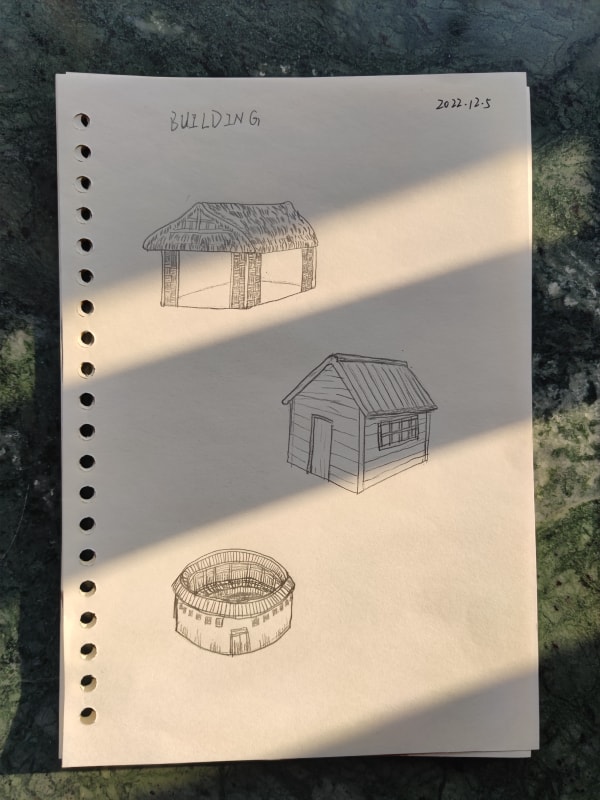 BUILDING
2022.12.5